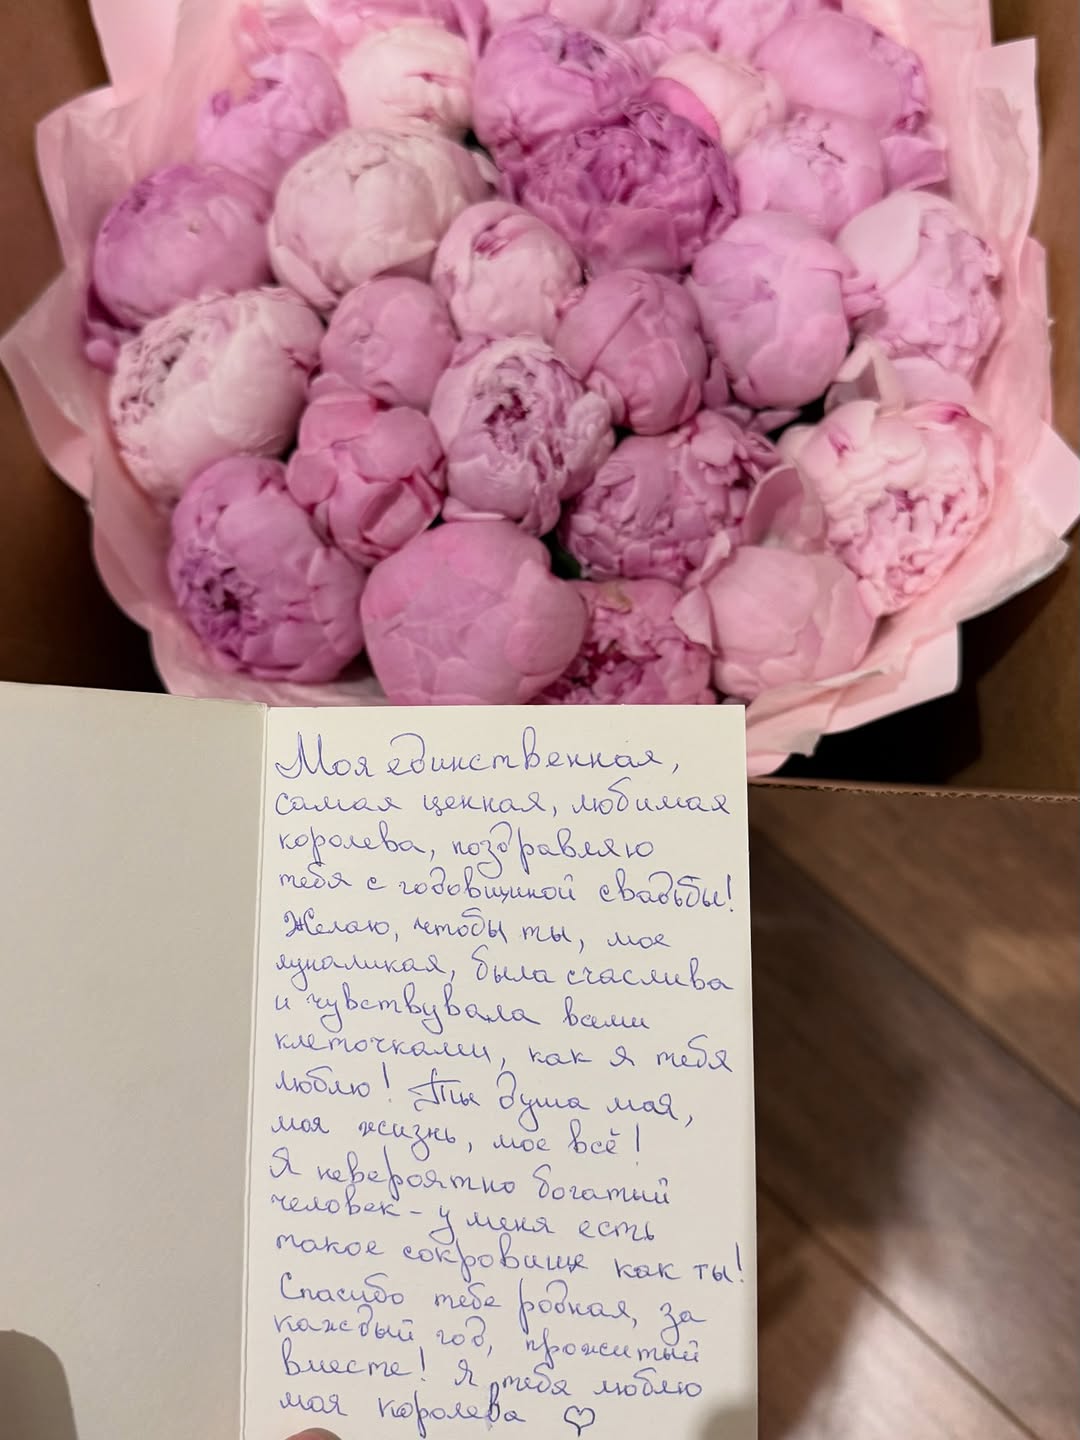 Моя единственная,
самая ценная, любимая
королева, поздравляю
тебя с годовщиной свадьбы!
Желаю, чтобы ты, моя
луноликая, была счастлива
и чувствувала всеми
клеточками, как я тебя
люблю! Ты душа моя,
моя жизнь, мое всё!
Я невероятно богатый
человек - у меня есть
такое сокровище как ты!
Спасибо тебе родная, за
каждый год, прожитый
вместе! Я тебя люблю
моя королева ♡